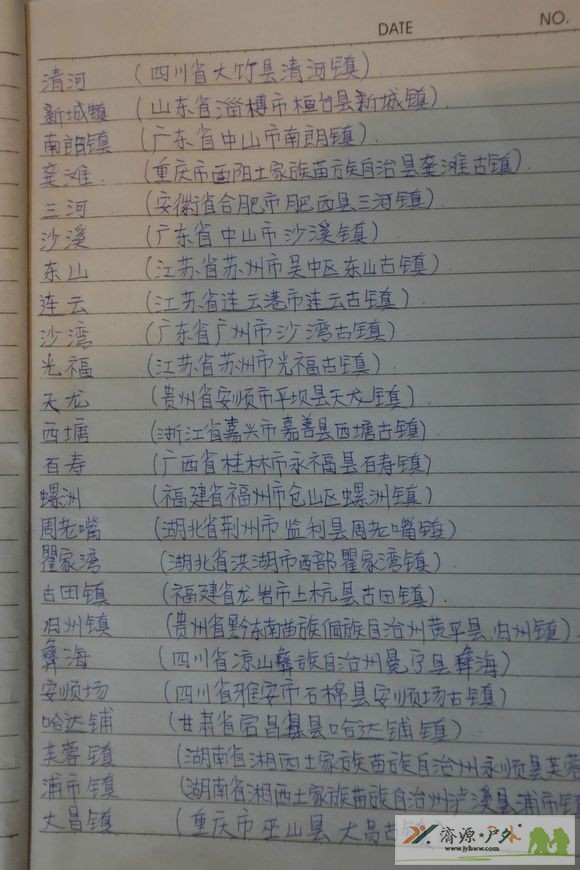 DATE NO.
清河 (四川省大竹县清河镇)
新城镇 (山东省淄博市桓台县新城镇)
南朗镇 (广东省中山市南朗镇)
龚滩. (重庆市酉阳土家族苗族自治县龚滩古镇)
三河 (安徽省合肥市肥西县三河镇)
沙溪 (广东省中山市沙溪镇)
东山 (江苏省苏州市吴中区东山古镇)
连云 (江苏省连云港市连云古镇)
沙湾 (广东省广州市沙湾古镇)
光福 (江苏省苏州市光福古镇)
天龙 (贵州省安顺市平坝县天龙镇)
西塘 (浙江省嘉兴市嘉善县西塘古镇)
百寿 (广西省桂林市永福县百寿镇)
螺洲 (福建省福州市仓山区螺洲镇)
周老嘴 (湖北省荆州市监利县周老嘴镇)
瞿家湾 (湖北省洪湖市西部瞿家湾镇)
古田镇 (福建省龙岩市上杭县古田镇)
旧州镇 (贵州省黔东南苗族侗族自治州黄平县旧州镇)
彝海 (四川省凉山彝族自治州冕宁县彝海)
安顺场 (四川省雅安市石棉县安顺场古镇)
哈达铺 (甘肃省宕昌县哈达铺镇)
芙蓉镇 (湖南省湘西土家族苗族自治州永顺县芙蓉
浦市镇 (湖南省湘西土家族苗族自治州泸溪县浦市镇
大昌镇 (重庆市巫山县大昌古
济源·户外
www.jyhww.com